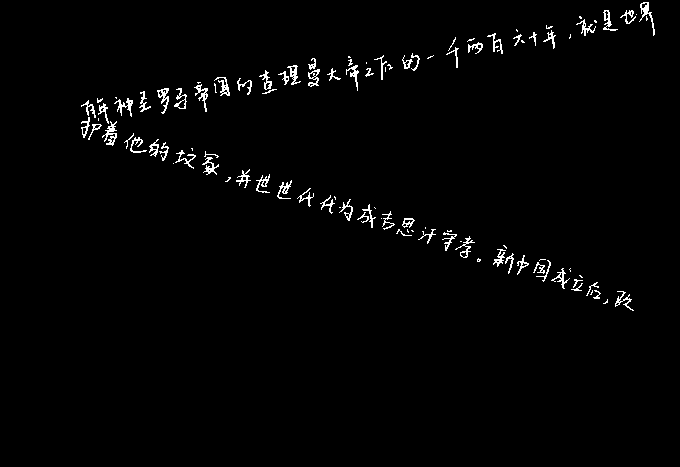 解神圣罗马帝国的查理曼大帝之后的一千两百六十年，就是世界
护着他的坟冢，并世世代代为成吉思汗守孝。新中国成立后，政